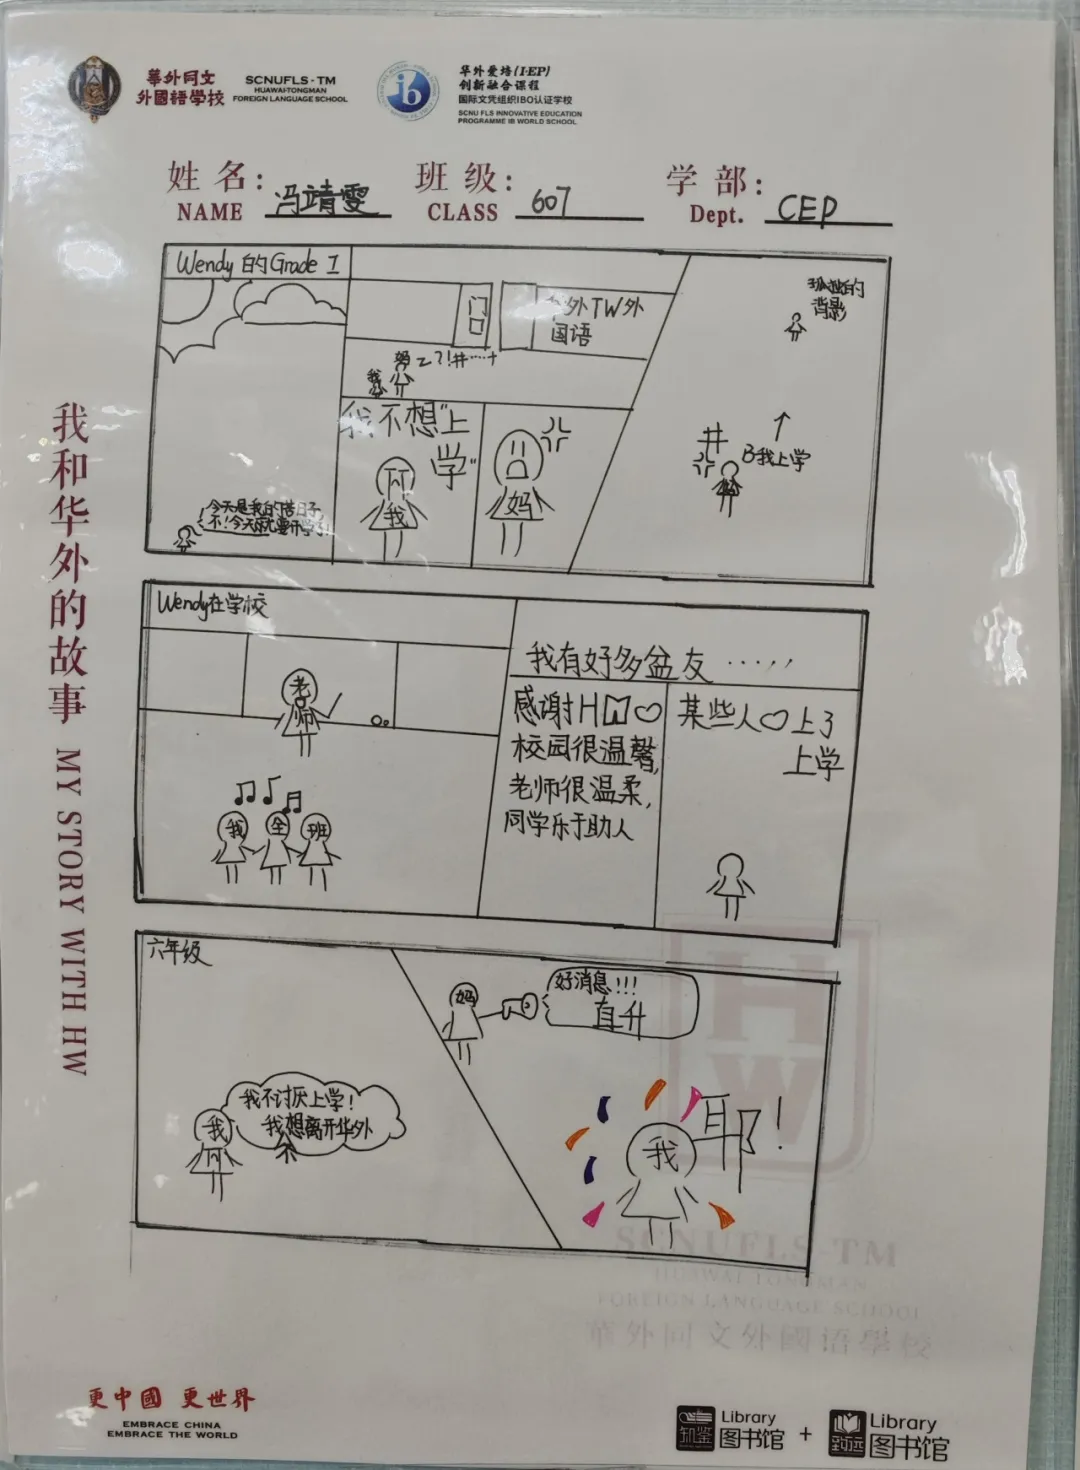 華外同文
外國語學校
SCNUFLS-TM
HUAWAI-TONGMAN
FOREIGN LANGUAGE SCHOOL
华外爱培(I·EP)
创新融合课程
国际文凭组织IBO认证学校
SCNU FLS INNOVATIVE EDUCATION
PROGRAMME IB WORLD SCHOOL
姓名:
NAME
冯靖雯
班级:
CLASS
607
学部:
Dept.
CEP
我和华外的故事 MY STORY WITH HW
Wendy的Grade 1
今天是我的苦日子,
不!今天就要开学了!
门口
外TW外
国语
妈
我
我不想“上
学”
我
妈
孤独的
背影
井
B我上学
妈
Wendy在学校
老
师
我
全
班
我有好多盆友……
感谢HW
校园很温馨,
老师很温柔,
同学乐于助人
某些人♡上了
上学
六年级
我不讨厌上学!
我不想离开华外
我
妈
好消息!!!
直升
我
耶!
HW
SCNUFLS-TM
HUAWAI-TONGMAN
FOREIGN LANGUAGE SCHOOL
華外同文外國語學校
更中國 更世界
EMBRACE CHINA
EMBRACE THE WORLD
知鉴
Library
图书馆
+
致远
Library
图书馆